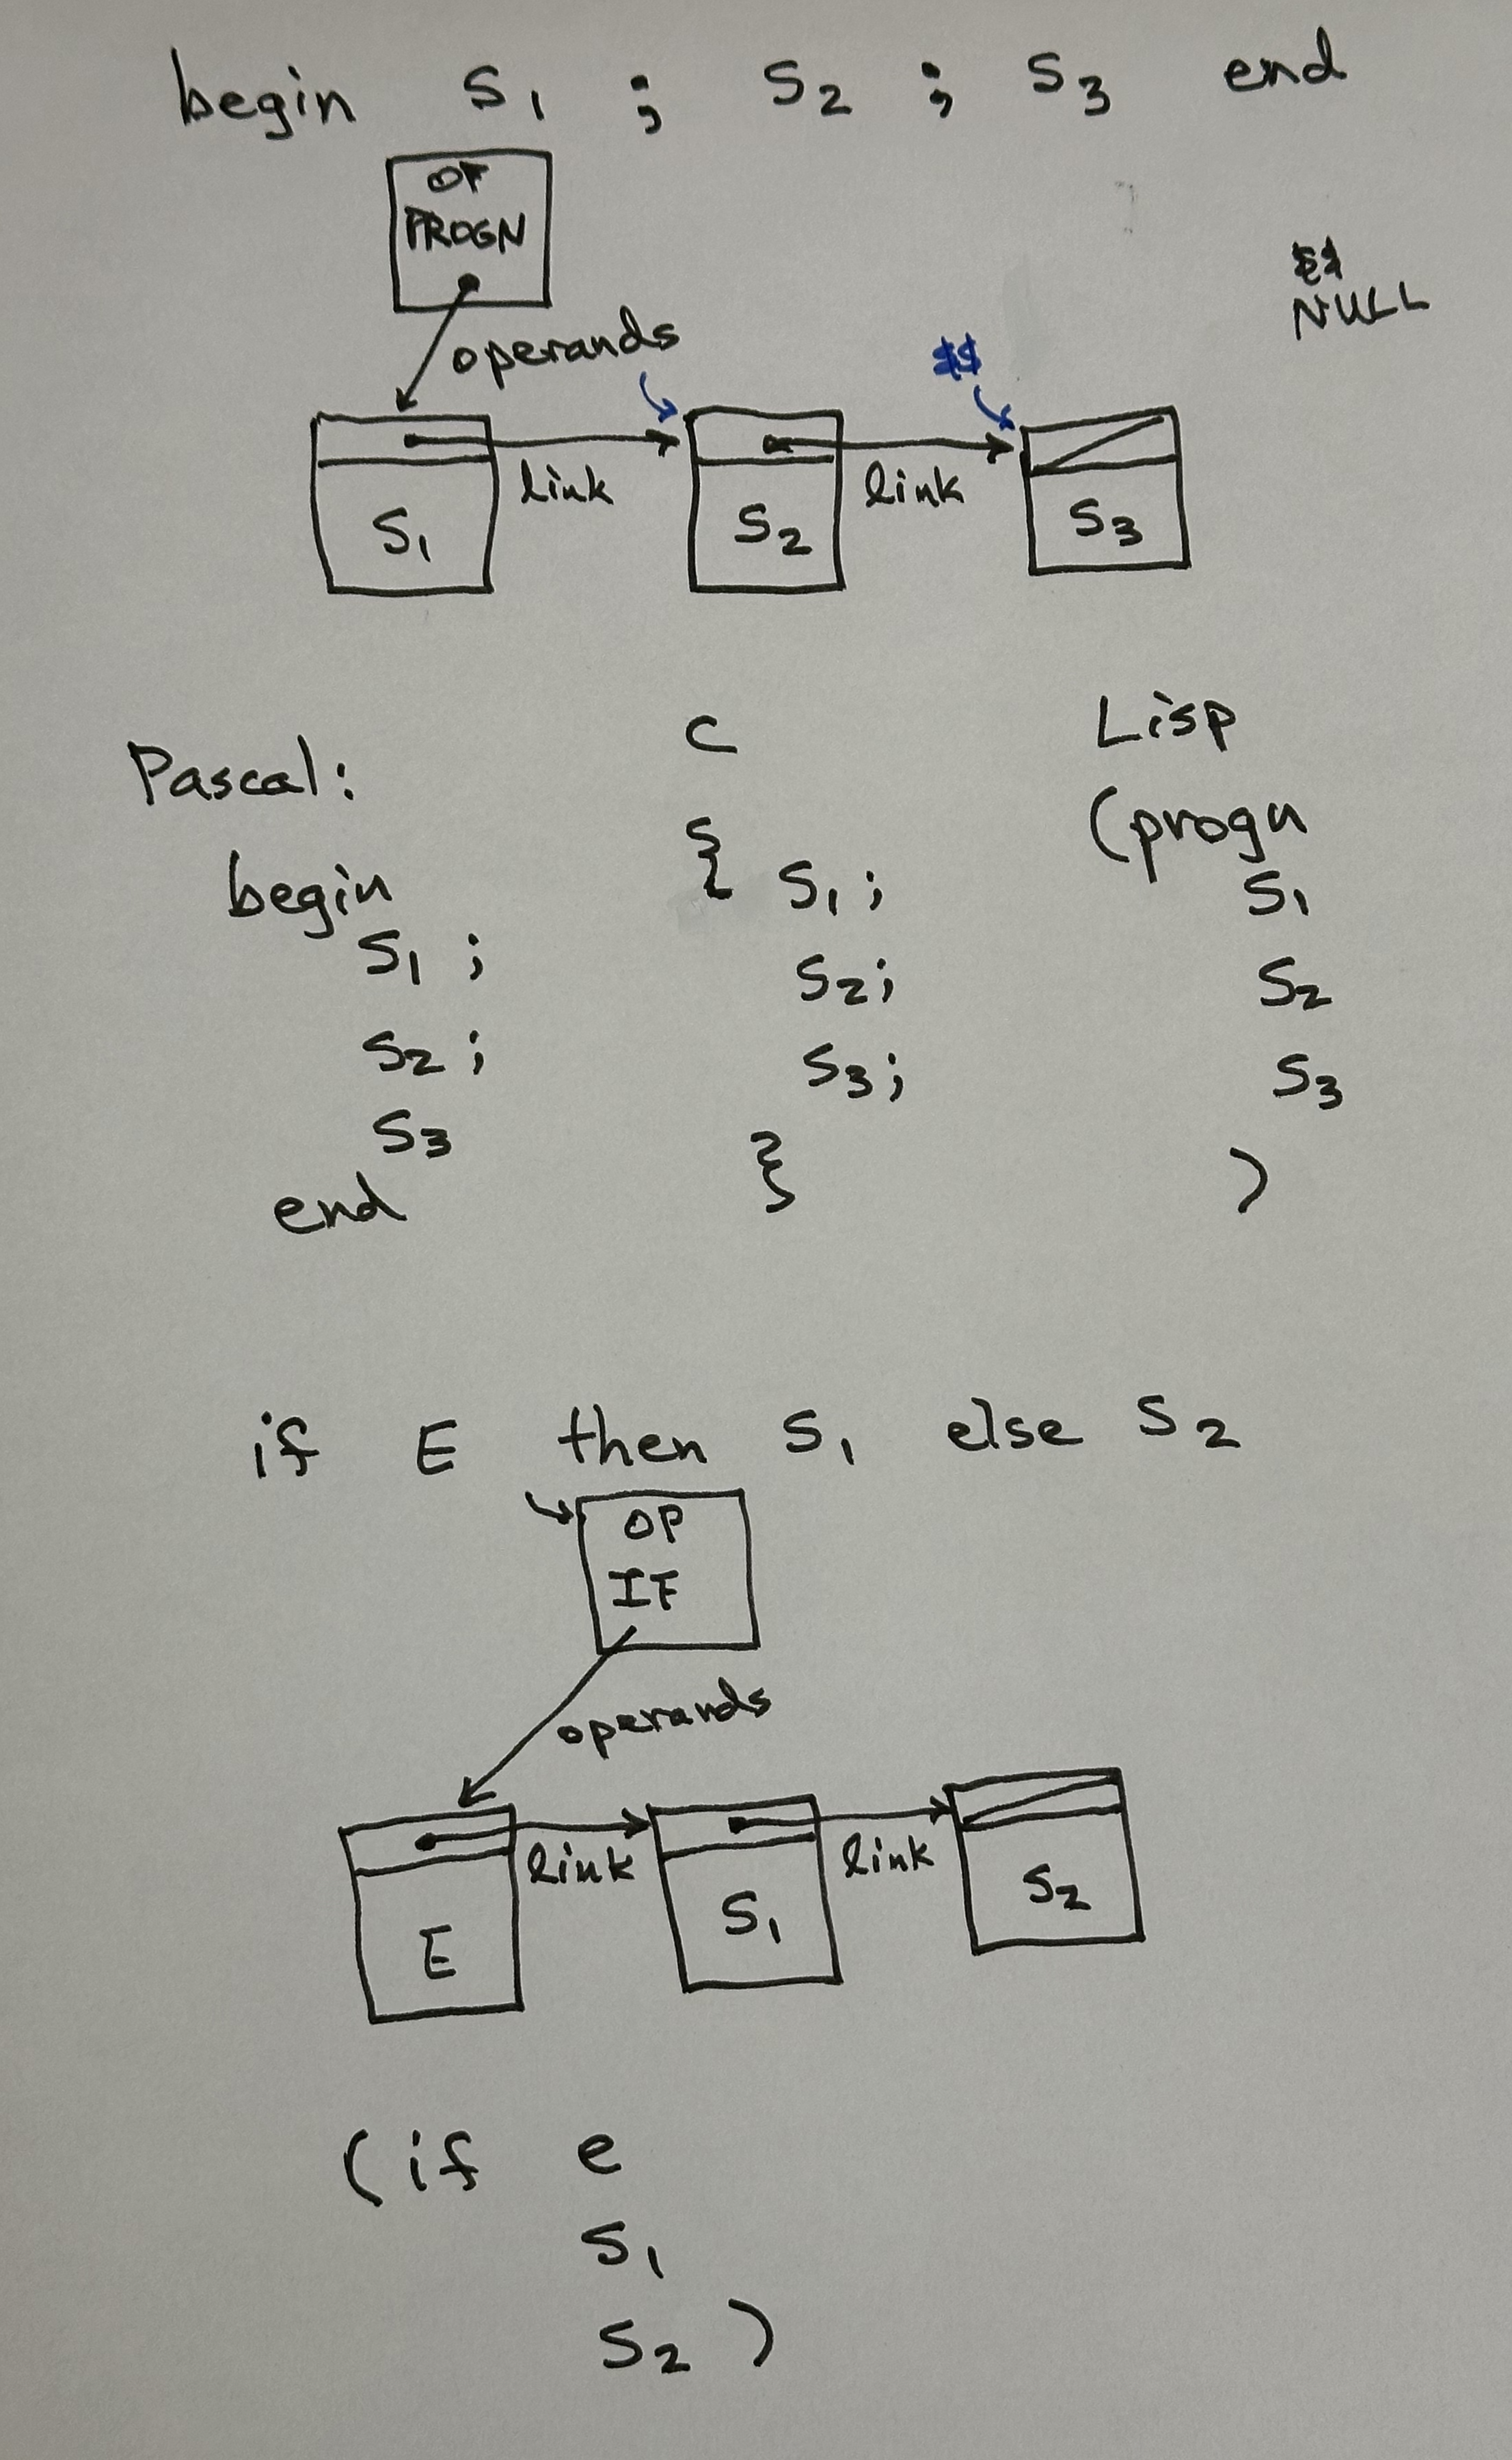 begin S1 ; S2 ; S3 end
OP
PROGN
$$
NULL
operands
$$
link
link
S1
S2
S3
Pascal:
begin
S1 ;
S2 ;
S3
end
C
{ S1 ;
S2;
S3;
}
Lisp
(progn
S1
S2
S3
)
if E then S1 else S2
OP
IF
operands
link
link
E
S1
S2
(if e
S1
S2 )